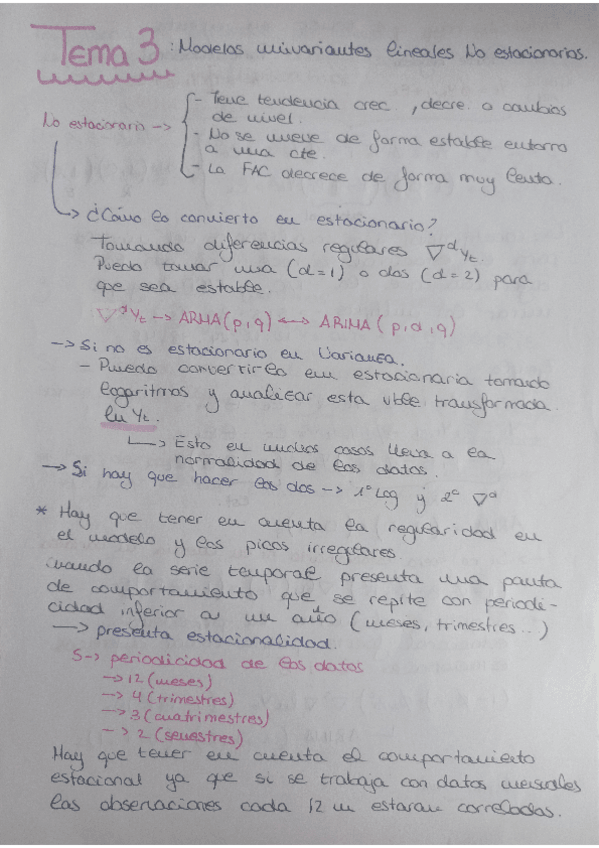 Tema 3: Modelos univariantes lineales No estacionarios.
No estacionario -> - Tiene tendencia crec, decre. o cambios
de nivel.
- No se mueve de forma estable entorno
a una cte.
- La FAC decrece de forma muy lenta.
-> ¿Cómo lo convierto en estacionario?
Tomando diferencias regulares ∇ᵈYₜ.
Puedo tomar una (d=1) o dos (d=2) para
que sea estable.
∇ᵈYₜ -> ARMA(p,q) <-> ARIMA(p,d,q)
-> Si no es estacionario en Varianza.
- Puedo convertirlo en estacionaria tomando
logaritmos y analizar esta vble transformada
ln Yₜ.
-> Esto en muchos casos lleva a la
normalidad de los datos.
-> Si hay que hacer las dos -> 1º Log y 2º ∇ᵈ
* Hay que tener en cuenta la regularidad en
el modelo y los picos irregulares.
Cuando la serie temporal presenta una pauta
de comportamiento que se repite con periodi-
cidad inferior a un año (meses, trimestres..)
-> presenta estacionalidad.
S -> periodicidad de los datos
-> 12 (meses)
-> 4 (trimestres)
-> 3 (cuatrimestres)
-> 2 (semestres)
Hay que tener en cuenta el comportamiento
estacional ya que si se trabaja con datos mensuales
las observaciones cada 12 m estaran correladas.